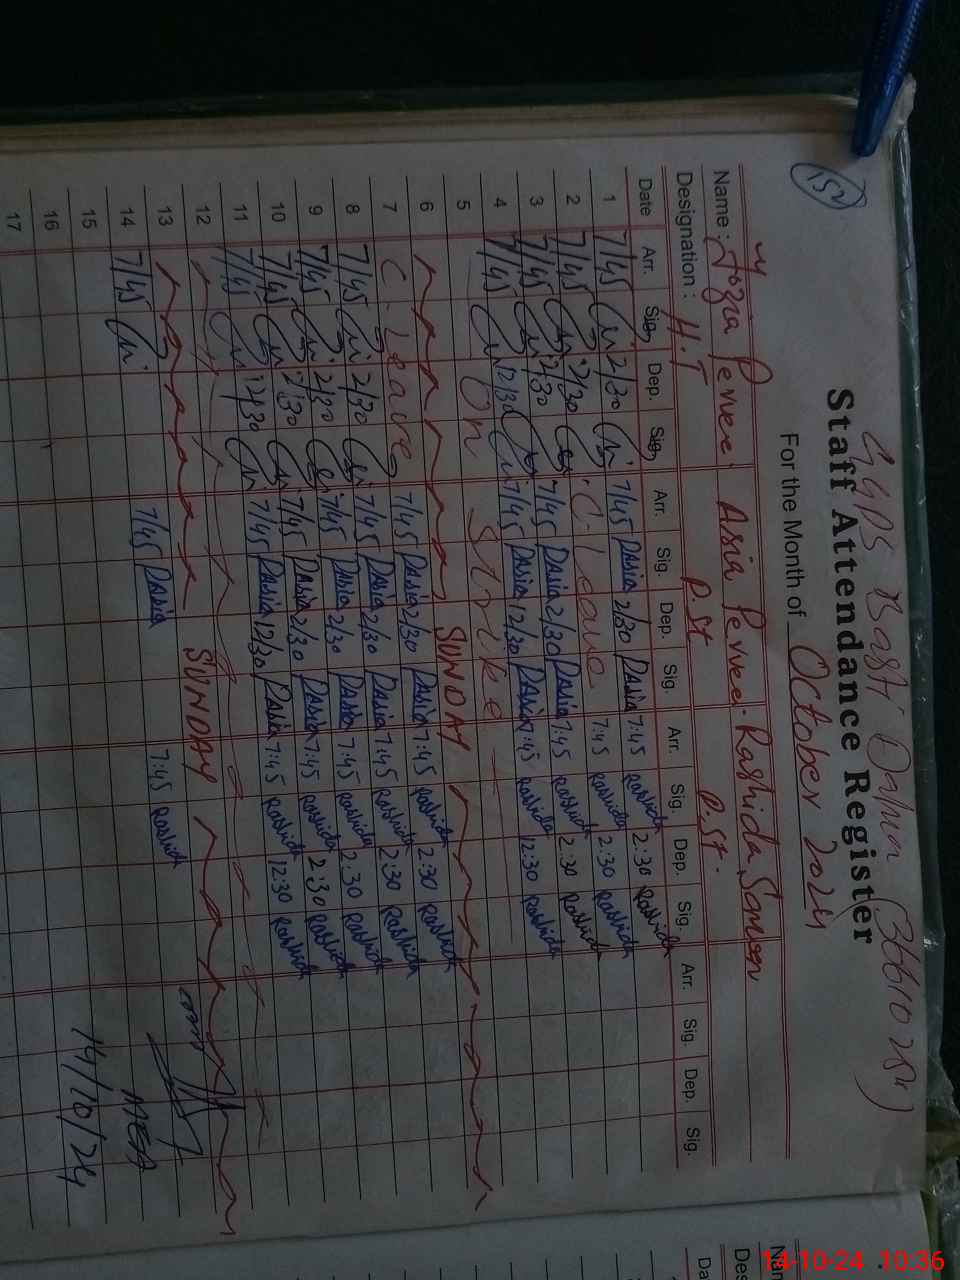 152
GGPS Basti Dahua (36610254)
Staff Attendance Register
For the Month of October 2024
Name : Azra Perveen Asia Perveen Rashida Samreen
Designation : H.T P.ST P.ST.
Date Arr. Sig. Dep. Sig. Arr. Sig. Dep. Sig. Arr. Sig. Dep. Sig. Arr. Sig. Dep. Sig.
1 7/45 2/30 7/45 Dasia 2/30 Dasia 7:45 Rashida 2:30 Rashida
2 7/45 2/30 C. Leave 7:45 Rashida 2:30 Rashida
3 7/45 2/30 7/45 Dasia 2/30 Dasia 7:45 Rashida 2:30 Rashida
4 7/45 12/30 7/45 Dasia 12/30 Dasia 7:45 Rashida 12:30 Rashida
5 On Strike
6 SUNDAY
7 C. Leave 7/45 Dasia 2/30 Dasia 7:45 Rashida 2:30 Rashida
8 7/45 2/30 7/45 Dasia 2/30 Dasia 7:45 Rashida 2:30 Rashida
9 7/45 2/30 7/45 Dasia 2/30 Dasia 7:45 Rashida 2:30 Rashida
10 7/45 2/30 7/45 Dasia 2/30 Dasia 7:45 Rashida 2:30 Rashida
11 7/45 12/30 7/45 Dasia 12/30 Dasia 7:45 Rashida 12:30 Rashida
12
13 SUNDAY
14 7/45 7/45 Dasia 7:45 Rashida
15
16
17
MEA
14/10/24
14-10-24 10:36